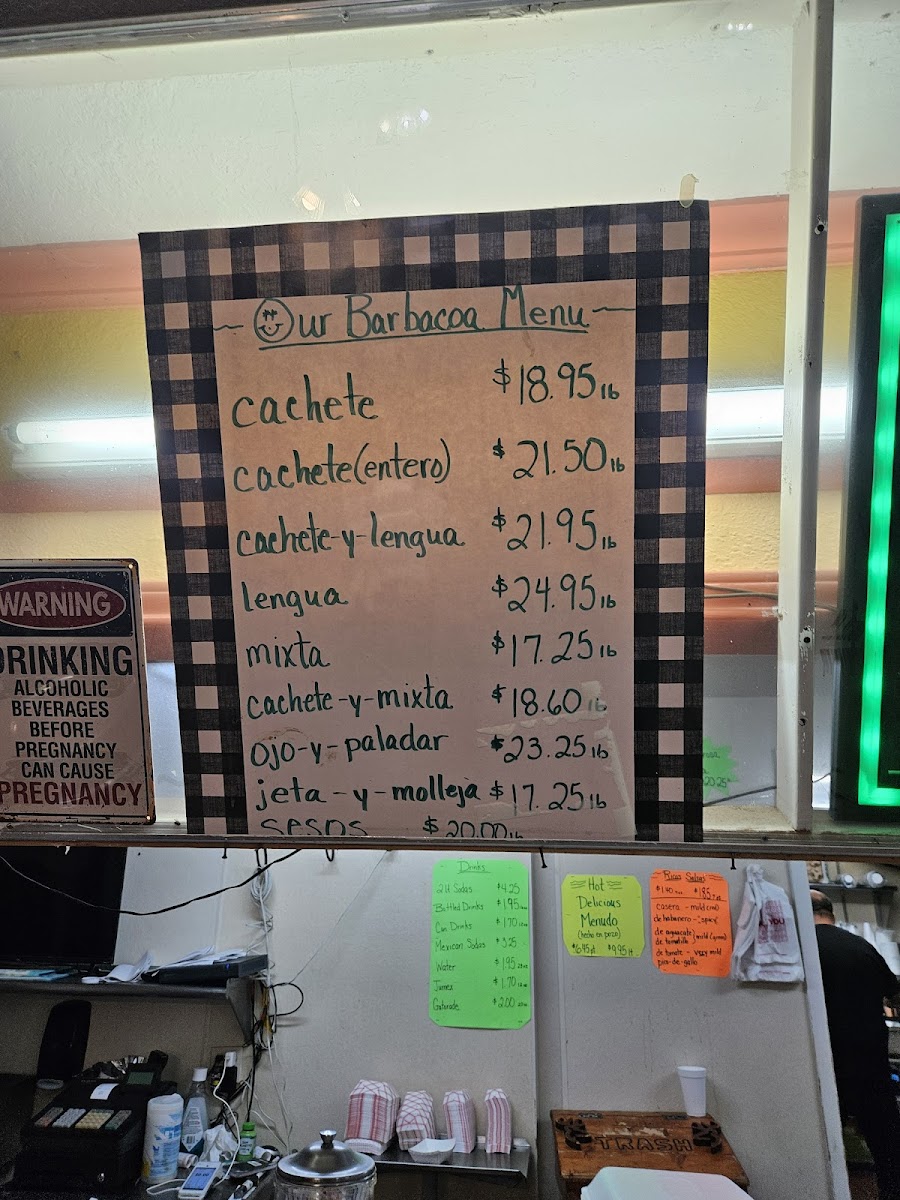 Our Barbacoa Menu
cachete $18.95 lb
cachete(entero) $21.50 lb
cachete-y-lengua $21.95 lb
lengua $24.95 lb
mixta $17.25 lb
cachete-y-mixta $18.60 lb
ojo-y-paladar $23.25 lb
jeta-y-molleja $17.25 lb
sesos $20.00 lb
WARNING
DRINKING
ALCOHOLIC
BEVERAGES
BEFORE
PREGNANCY
CAN CAUSE
PREGNANCY
Drinks
2 Lt Sodas $4.25
Bottled Drinks $1.95
Can Drinks $1.70
Mexican Sodas $3.25
Water $1.95
Juices $1.70
Gatorade $2.00
Hot
Delicious
Menudo
$6.45 pt $9.95
Salsas
$1.40 $1.85
casera - mild
de habanero - spicy
de aguacate
de tomatillo mild
de tomate - very mild
pico-de-gallo
YOU
TRASH